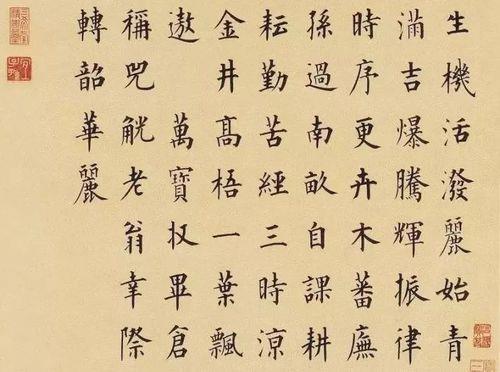 生機活潑麗始青
滿吉爆騰輝振律
時序更卉木蕃廡
孫過南畝自課耕
耘勤苦經三時涼
金井髙梧一葉飄
遨 萬寶収畢倉
稱兕觥老翁幸際
轉韶華麗